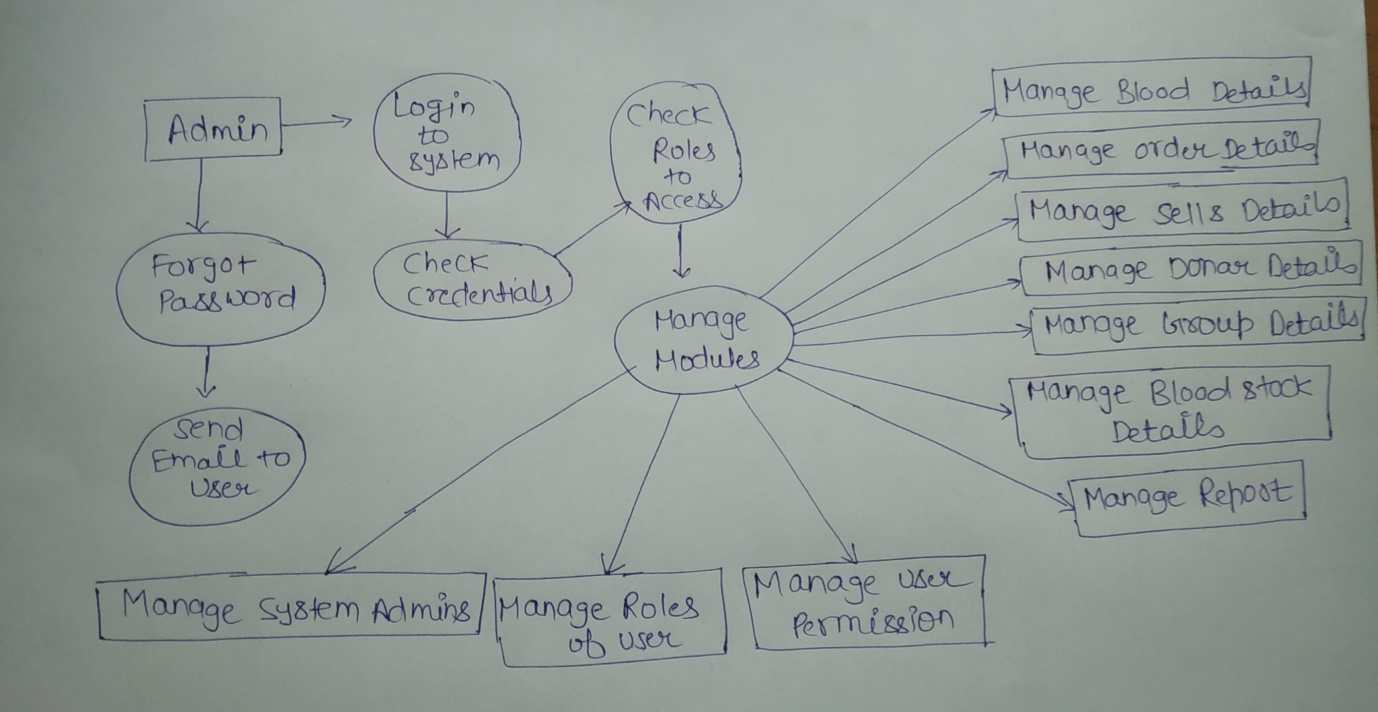 Admin
Login
to
system
Check
Roles
to
Access
Forgot
Password
Check
Credentials
Send
Email to
User
Manage
Modules
Manage Blood Details
Manage order Details
Manage Sells Details
Manage Donar Details
Manage Group Details
Manage Blood stock
Details
Manage Report
Manage System Admins
Manage Roles
of user
Manage User
Permission